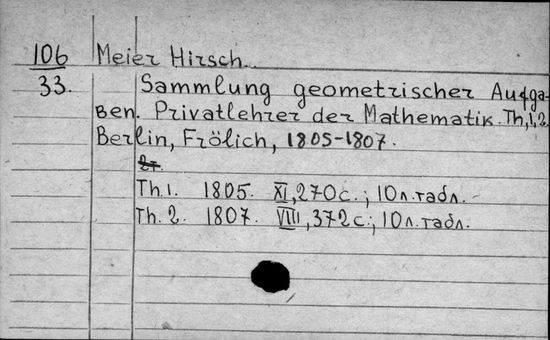 106 Meier Hirsch.
33. Sammlung geometrischer Aufga-
ben. Privatlehrer der Mathematik. Th, 1, 2.
Berlin, Frölich, 1805-1807.
2т.
Th. 1. 1805. XI, 270 с.; 10 л. табл. -
Th. 2. 1807. VIII, 372 с.; 10 л. табл.